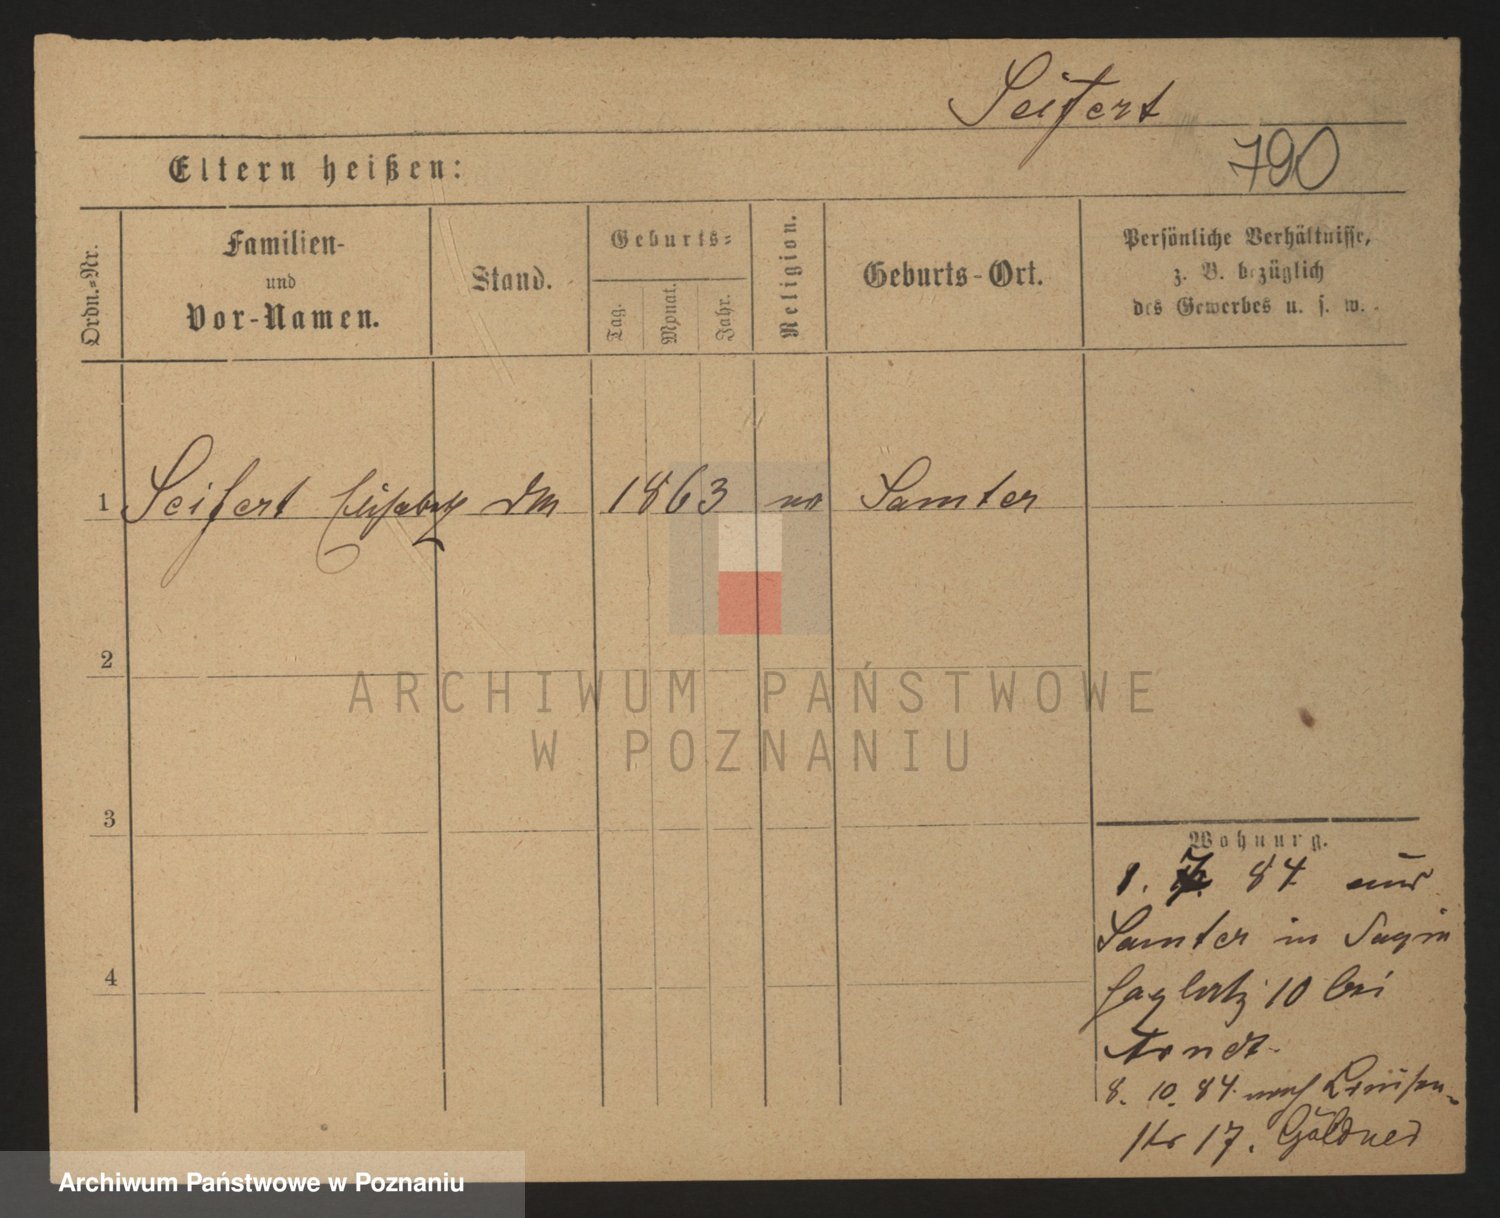 Seifert
790
Eltern heißen:
Ordn.=Nr.
Familien-
und
Vor-Namen.
Stand.
Geburts=
Tag.
Monat.
Jahr.
Religion.
Geburts-Ort.
Persönliche Verhältnisse,
z. B. bezüglich
des Gewerbes u. s. w.
1 Seifert Elisabeth 1863 Samter
2
ARCHIWUM PAŃSTWOWE
W POZNANIU
3
4
Wohnung.
1. 7. 84 aus
Samter in
10 bei
Arndt
8. 10. 84 nach Louisen-
str 17. Göldner
Archiwum Państwowe w Poznaniu